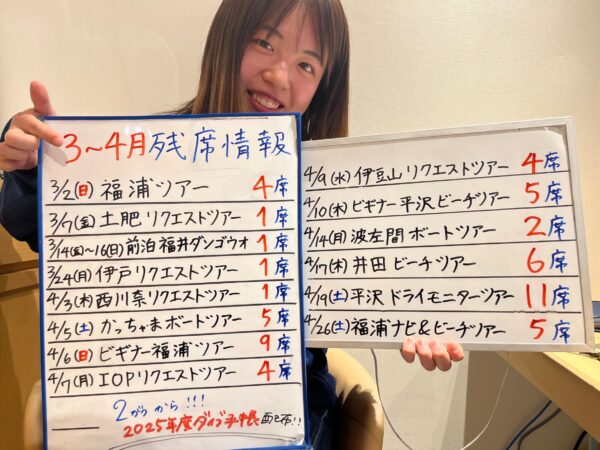 3～4月残席情報
3/2(日)福浦ツアー 4席
3/7(金)土肥リクエストツアー 1席
3/14(金)～16(日)前泊福井ダンゴウオ 1席
3/24(月)伊戸リクエストツアー 1席
4/3(木)西川奈リクエストツアー 1席
4/5(土)かっちゃまボートツアー 5席
4/6(日)ビギナー福浦ツアー 9席
4/7(月)IOPリクエストツアー 4席
2025年度ダイブ手帳配布!!
4/9(水)伊豆山リクエストツアー 4席
4/10(木)ビギナー平沢ビーチツアー 5席
4/14(月)波左間ボートツアー 2席
4/17(木)井田ビーチツアー 6席
4/19(土)平沢ドライモニターツアー 11席
4/26(土)福浦ナビ&ビーチツアー 5席